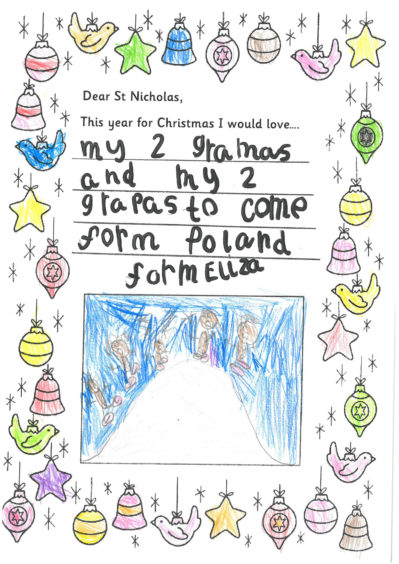 Dear St Nicholas,
This year for Christmas I would love....
my 2 gramas
and my 2
grapas to come
form Poland
form Eliza